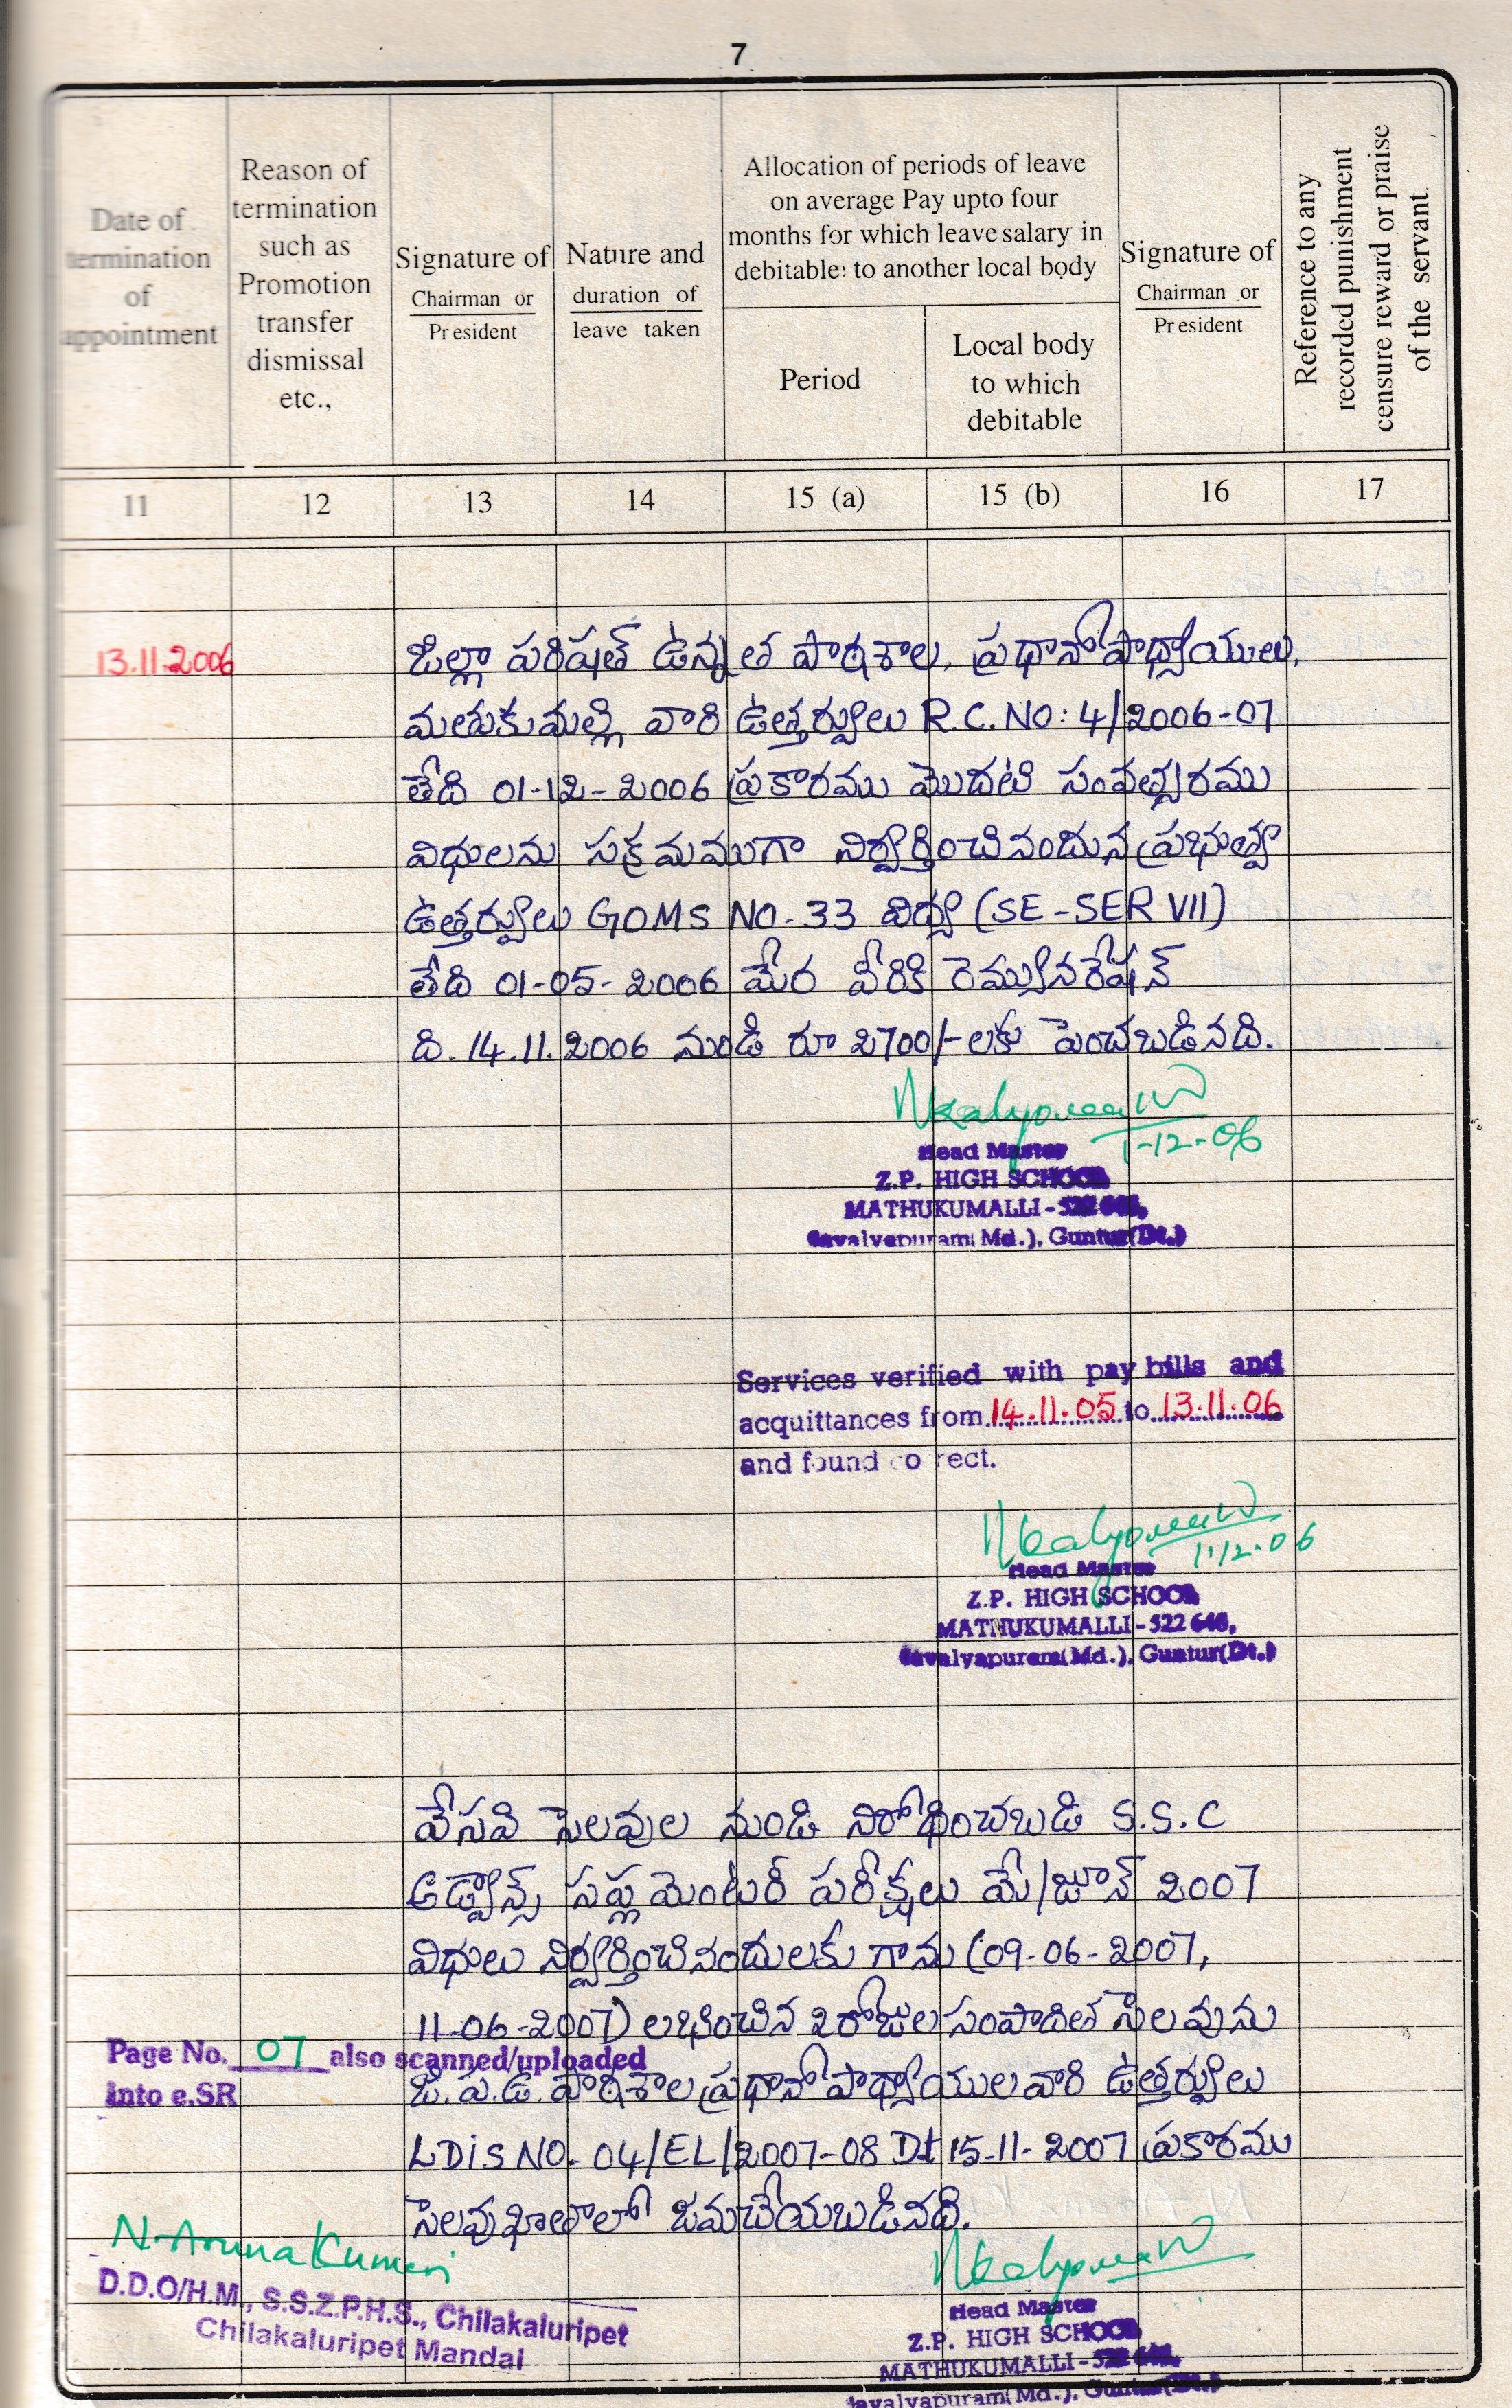 7
Date of termination of appointment
Reason of termination such as Promotion transfer dismissal etc.,
Signature of Chairman or President
Nature and duration of leave taken
Allocation of periods of leave on average Pay upto four months for which leave salary in debitable to another local body
Period
Local body to which debitable
Signature of Chairman or President
Reference to any recorded punishment censure reward or praise of the servant.
11 12 13 14 15 (a) 15 (b) 16 17
13.11.2006
జిల్లా పరిషత్ ఉన్నత పాఠశాల, ప్రధానోపాధ్యాయులు,
మతుకుమల్లి వారి ఉత్తర్వులు R.C.NO: 4/2006-07
తేది 01-12-2006 ప్రకారము మొదటి సంవత్సరము
విధులను సక్రమముగా నిర్వర్తించినందున ప్రభుత్వ
ఉత్తర్వులు GOMS NO-33 విద్య (SE-SER VII)
తేది 01-05-2006 మేర వీరికి రెమ్యునరేషన్
ది. 14.11.2006 నుండి రూ 2700/- లకు పెంచబడినది.
1-12-06
Head Master
Z.P. HIGH SCHOOL
MATHUKUMALLI-522
(Md.), Guntur(Dt.)
Services verified with pay bills and
acquittances from 14.11.05 to 13.11.06
and found co rect.
1.12.06
Head Master
Z.P. HIGH SCHOOL
MATHUKUMALLI-522
(Md.), Guntur(Dt.)
వేసవి సెలవుల నుండి నిరోధించబడి S.S.C
అడ్వాన్స్ సప్లమెంటరీ పరీక్షలు మే/జూన్ 2007
విధులు నిర్వర్తించినందులకు గాను (09-06-2007,
11-06-2007) లభించిన 2 రోజుల సంపాదిత సెలవును
Page No. 07 also scanned/uploaded
into e.SR
జి.ప.ఉ.పాఠశాల ప్రధానోపాధ్యాయుల వారి ఉత్తర్వులు
LDiS NO. 04/EL/2007-08 Dt 15-11-2007 ప్రకారము
సెలవు ఖాతాలో జమచేయబడినది.
N. Aruna Kumari
D.D.O/H.M., S.S.Z.P.H.S., Chilakaluripet
Chilakaluripet Mandal
Head Master
Z.P. HIGH SCHOOL
MATHUKUMALLI-522
(Md.), Guntur(Dt.)